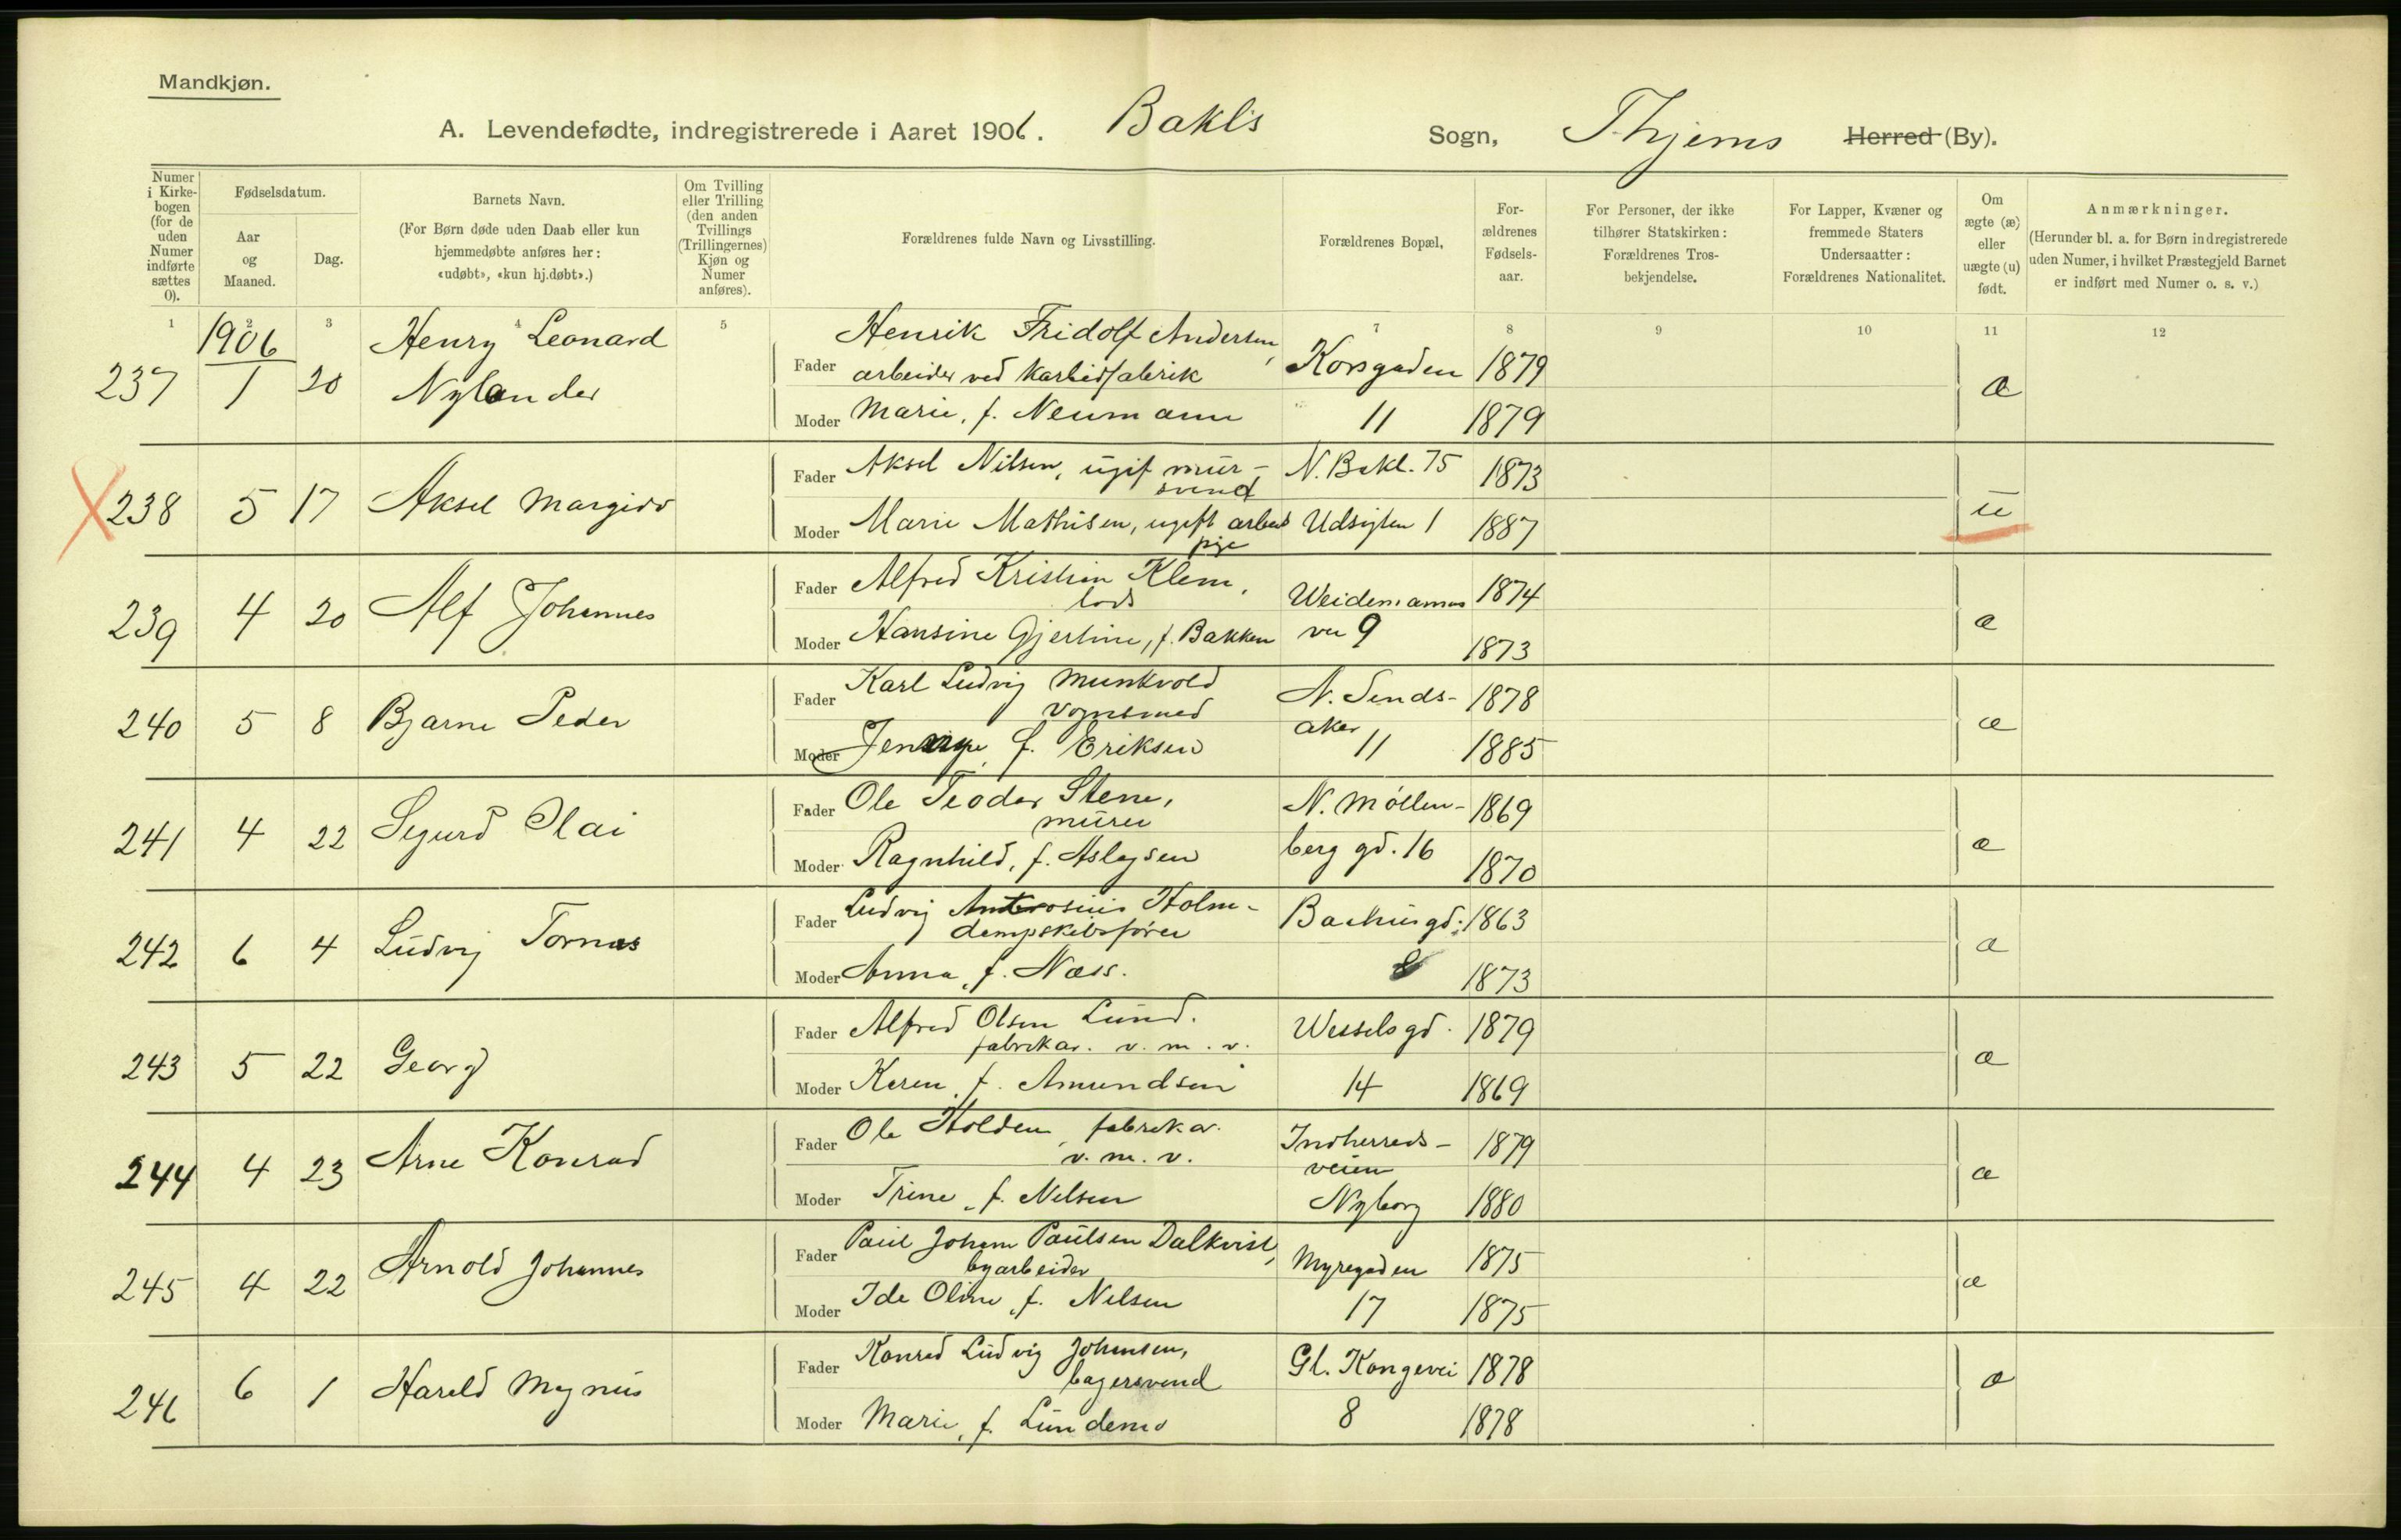 Mandkjøn.
A. Levendefødte, indregistrerede i Aaret 1906. Bakl's Sogn, Thjems Herred (By).
Numer i Kirkebogen (for de uden Numer indførte sættes 0).
Fødselsdatum.
Aar og Maaned.
Dag.
Barnets Navn.
(For Børn døde uden Daab eller kun hjemmedøbte anføres her: «udøbt», «kun hj.døbt».)
Om Tvilling eller Trilling (den anden Tvillings (Trillingernes) Kjøn og Numer anføres).
Forældrenes fulde Navn og Livsstilling.
Forældrenes Bopæl,
Forældrenes Fødselsaar.
For Personer, der ikke tilhører Statskirken: Forældrenes Trosbekjendelse.
For Lapper, Kvæner og fremmede Staters Undersaatter: Forældrenes Nationalitet.
Om ægte (æ) eller uægte (u) født.
Anmærkninger.
(Herunder bl. a. for Børn indregistrerede uden Numer, i hvilket Præstegjeld Barnet er indført med Numer o. s. v.)
1 2 3 4 5 7 8 9 10 11 12
1906 Henry Leonard Henrik Fridolf Andersen,
237 1 20 Nylander Fader arbeider ved Karbidfabrik Korsgaden 1879 æ
Moder Marie, f. Neumann 11 1879
Fader Aksel Nilsen, ugif mur- N. Bakl. 75 1873
svend
238 5 17 Aksel Margido u
Moder Marie Mathisen, ugift arbeids Udsigten 1 1887
pige
Fader Alfred Kristian Klem, 1874
lods Weidemanns
239 4 20 Alf Johannes æ
Moder Hansine Gjertine, f. Bakken vei 9 1873
Fader Karl Ludvig Munkvold N. Sends- 1878
vognsmed aker
240 5 8 Bjarne Peder æ
Moder Jenny, f. Eriksen 11 1885
Fader Ole Teodor Stene, N. Møllen- 1869
murer
241 4 22 Sigurd Olai æ
Moder Ragnhild, f. Aslagsen berg gd. 16 1870
Fader Ludvig Ambrosius Holm- Bachus gd. 1863
dampskibsfører
242 6 4 Ludvig Tornæs æ
Moder Anna, f. Næss. 8 1873
Fader Alfred Olsen Lund. Wessels gd. 1879
fabrikar. v. m. v.
243 5 22 Georg æ
Moder Karen, f. Amundsen 14 1869
Fader Ole Holden, fabrikar. Indherreds- 1879
v. m. v. veien
244 4 23 Arne Konrad æ
Moder Trine, f. Nilsen Nyborg 1880
Fader Paul Johan Paulsen Dalkvist, Myregaden 1875
byarbeider
245 4 22 Arnold Johannes æ
Moder Ida Oline, f. Nilsen 17 1875
Fader Konrad Ludvig Johansen, Gl. Kongevei 1878
bagersvend
246 6 1 Harald Magnus æ
Moder Marie, f. Lundemo 8 1878